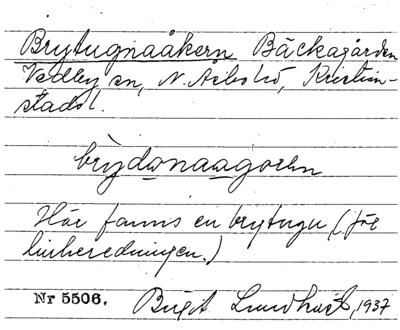 Brytugnaåkern Bäckagården
Vedby sn, N. Åsbohd, Kristian-
stads l.
brydonaagoren
Här fanns en brytugn (för
linberedningen.)
Nr 5506. Birgit Lundkvist, 1937